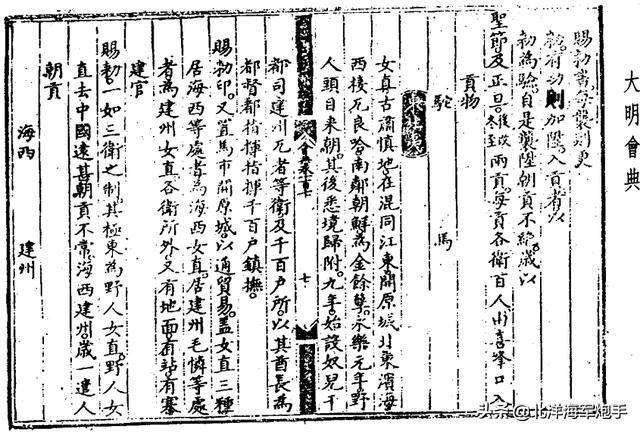 大明會典
賜勑書每襲則更
勑有功則加陞入貢者以
勑為驗自是襲陞朝貢不絕歲以
聖節及正旦兩貢每貢各衛百人由喜峯口入
貢物
駝 馬
東北夷
女真古肅慎地在混同江東開原城北東濱海
西接兀良哈南鄰朝鮮為金餘孽永樂元年野
人頭目來朝其後悉境歸附九年始設奴兒干
七
都司建州兀者等衛及千百戶所以其酋長為
都督都指揮指揮千百戶鎮撫
賜勑印又置馬市開原城以通貿易蓋女直三種
居海西等處者為海西女直居建州毛憐等處
者為建州女直各衛所外又有地面有站有寨
建官
賜勑一如三衛之制其極東為野人女直野人女
直去中國遠甚朝貢不常海西建州歲一遣人
朝貢
海西 建州
头条@北洋海军炮手